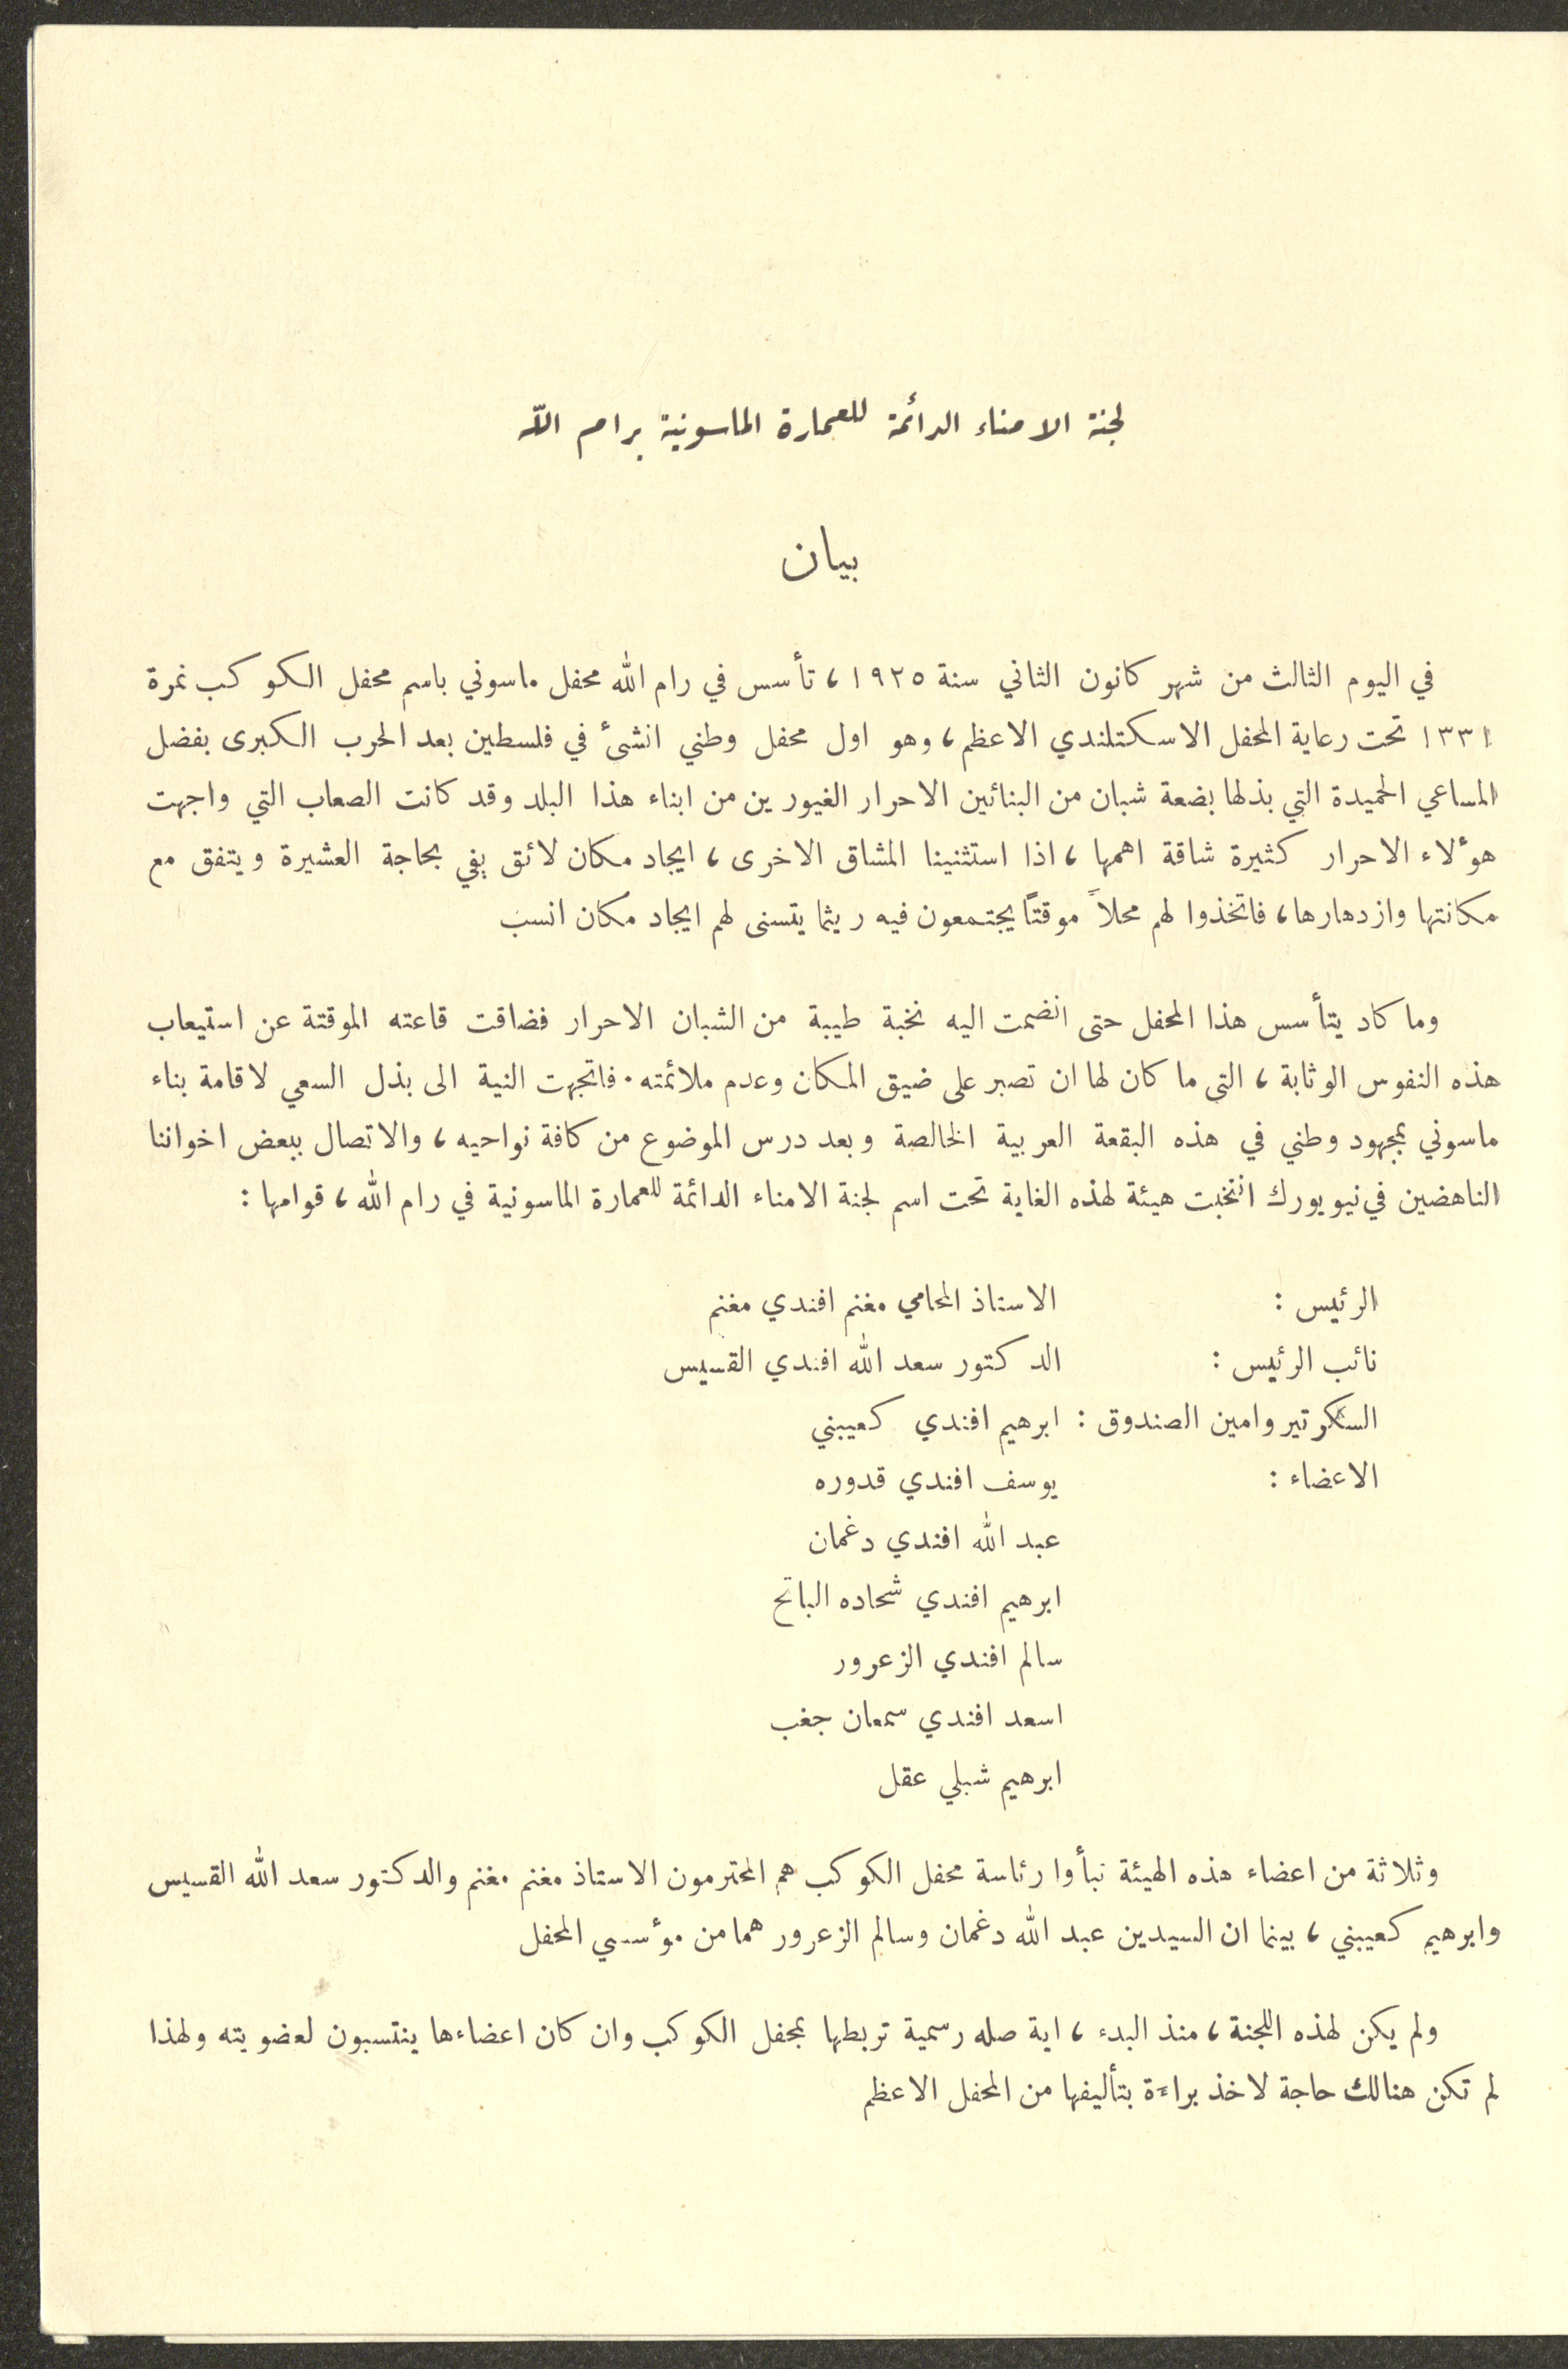 لجنة الامناء الدائمة للعمارة الماسونية برام الله
بيان
في اليوم الثالث من شهر كانون الثاني سنة ١٩٢٥، تأسس في رام الله محفل ماسوني باسم محفل الكوكب نمرة
١٣٣١ تحت رعاية المحفل الاسكتلندي الاعظم، وهو اول محفل وطني انشئ في فلسطين بعد الحرب الكبرى بفضل
المساعي الحميدة التي بذلها بضعة شبان من البنائين الاحرار الغيورين من ابناء هذا البلد وقد كانت الصعاب التي واجهت
هؤلاء الاحرار كثيرة شاقة اهمها، اذا استثنينا المشاق الاخرى، ايجاد مكان لائق يفي بحاجة العشيرة ويتفق مع
مكانتها وازدهارها، فاتخذوا لهم محلاً موقتاً يجتمعون فيه ريثما يتسنى لهم ايجاد مكان انسب
وما كاد يتأسس هذا المحفل حتى انضمت اليه نخبة طيبة من الشبان الاحرار فضاقت قاعته الموقتة عن استيعاب
هذه النفوس الوثابة، التى ما كان لها ان تصبر على ضيق المكان وعدم ملائمته. فاتجهت النية الى بذل السعي لاقامة بناء
ماسوني بمجهود وطني في هذه البقعة العربية الخالصة وبعد درس الموضوع من كافة نواحيه، والاتصال ببعض اخواننا
الناهضين في نيويورك انتخبت هيئة لهذه الغاية تحت اسم لجنة الامناء الدائمة للعمارة الماسونية في رام الله، قوامها:
الرئيس: الاستاذ المحامي مغنم افندي مغنم
نائب الرئيس: الدكتور سعد الله افندي القسيس
السكرتير وامين الصندوق: ابرهيم افندي كعيبني
الاعضاء: يوسف افندي قدوره
عبد الله افندي دغمان
ابرهيم افندي شحاده الباتح
سالم افندي الزعرور
اسعد افندي سمعان جغب
ابرهيم شبلي عقل
وثلاثة من اعضاء هذه الهيئة تبأوا رئاسة محفل الكوكب هم المحترمون الاستاذ مغنم مغنم والدكتور سعد الله القسيس
وابرهيم كعيبني، بينما ان السيدين عبد الله دغمان وسالم الزعرور هما من مؤسسي المحفل
ولم يكن لهذه اللجنة، منذ البدء، اية صله رسمية تربطها بمحفل الكوكب وان كان اعضاءها ينتسبون لعضويته ولهذا
لم تكن هنالك حاجة لاخذ براءة بتأليفها من المحفل الاعظم